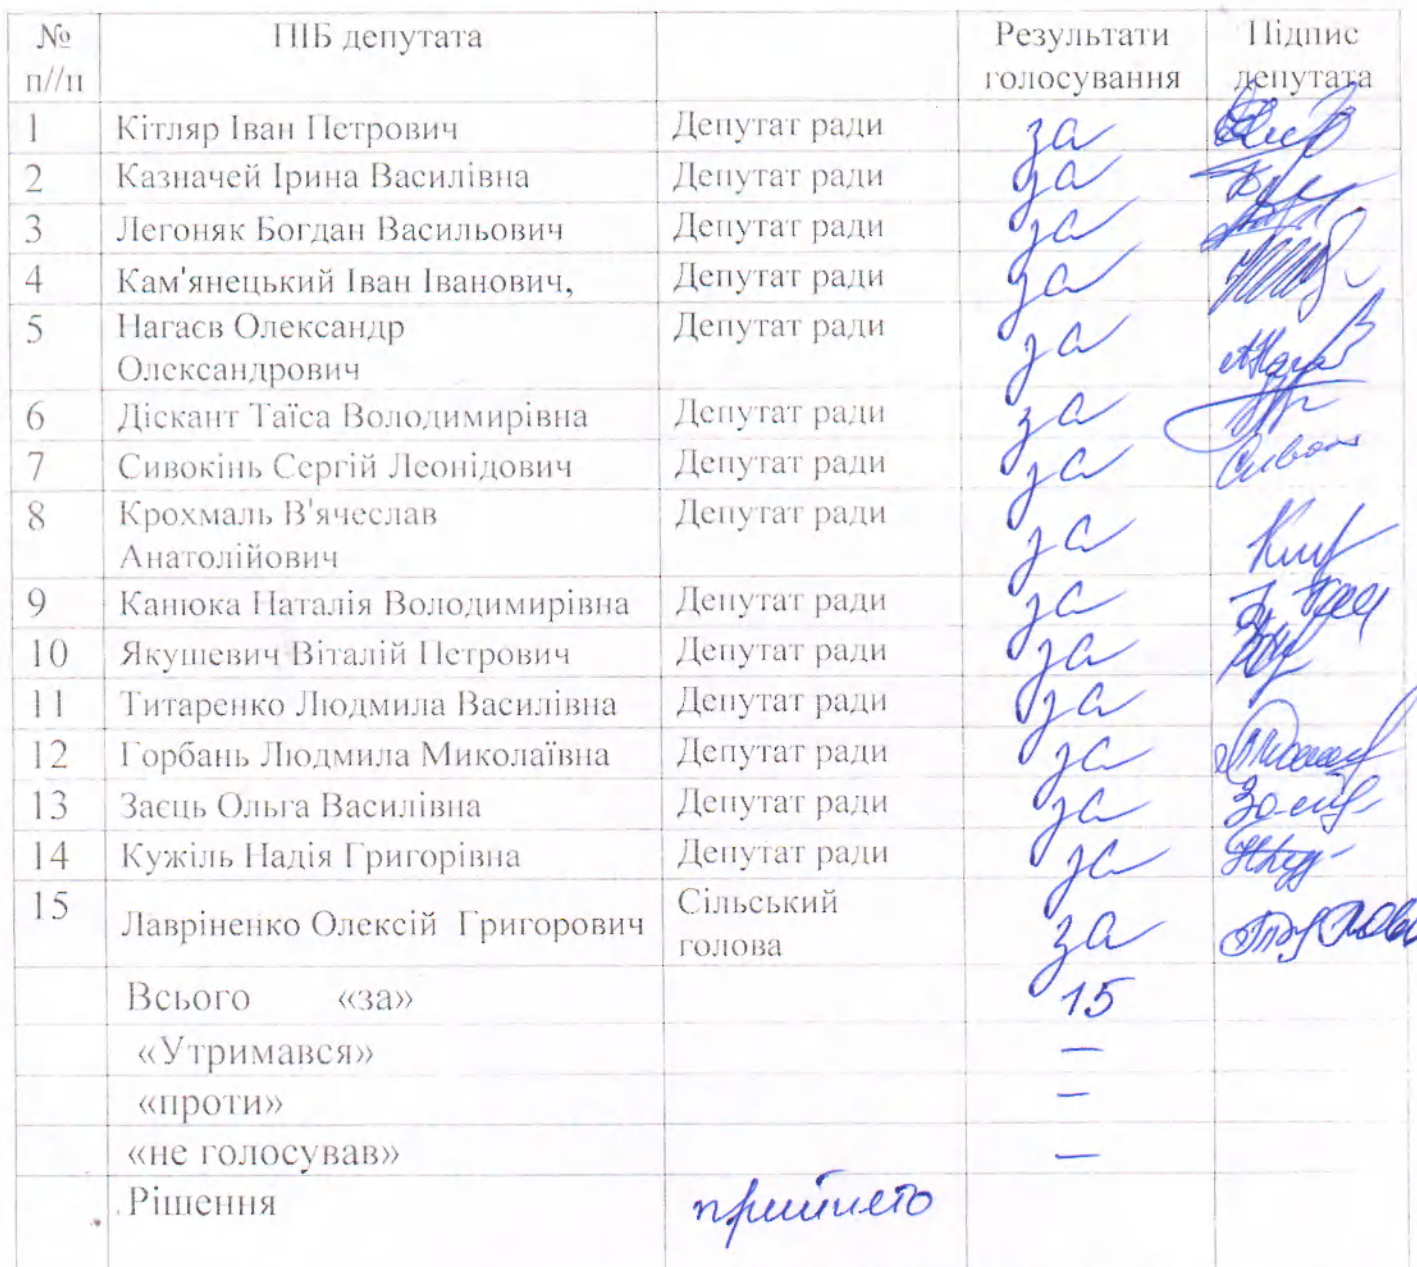 № ПІБ депутата Результати Підпис
п//п голосування депутата
1 Кітляр Іван Петрович Депутат ради за
2 Казначей Ірина Василівна Депутат ради за
3 Легоняк Богдан Васильович Депутат ради за
4 Кам'янецький Іван Іванович, Депутат ради за
5 Нагаєв Олександр Депутат ради за
Олександрович
6 Діскант Таїса Володимирівна Депутат ради за
7 Сивокінь Сергій Леонідович Депутат ради за
8 Крохмаль В'ячеслав Депутат ради за
Анатолійович
9 Канюка Наталія Володимирівна Депутат ради за
10 Якушевич Віталій Петрович Депутат ради за
11 Титаренко Людмила Василівна Депутат ради за
12 Горбань Людмила Миколаївна Депутат ради за
13 Заєць Ольга Василівна Депутат ради за
14 Кужіль Надія Григорівна Депутат ради за
15 Лавріненко Олексій Григорович Сільський за
голова
Всього «за» 15
«Утримався» —
«проти» —
«не голосував» —
Рішення прийнято